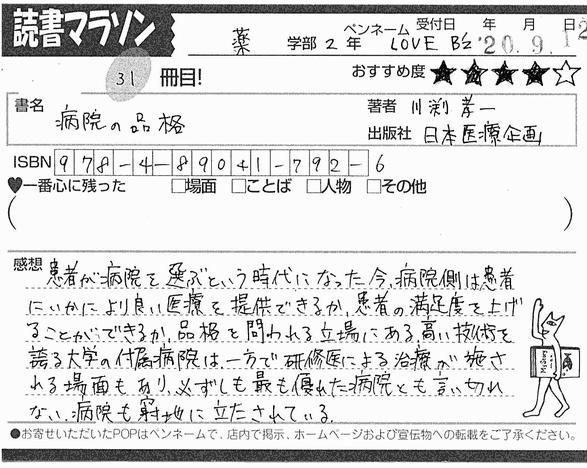 読書マラソン
薬 学部 2 年 ペンネーム LOVE B'z 受付日 年 月 日
'20. 9. 12
31 冊目!
おすすめ度 ★★★★☆
書名 病院の品格
著者 川渕孝一
出版社 日本医療企画
ISBN 978-4-89041-792-6
♥一番心に残った □場面 □ことば □人物 □その他
( )
感想 患者が病院を選ぶという時代になった今、病院側は患者
にいかにより良い医療を提供できるか、患者の満足度を上げ
ることができるか、品格を問われる立場にある。高い技術を
誇る大学の付属病院は、一方で研修医による治療が施さ
れる場面もあり、必ずしも最も優れた病院とも言い切れ
ない。病院も窮地に立たされている。
●お寄せいただいたPOPはペンネームで、店内で掲示、ホームページおよび宣伝物への転載をご了承ください。